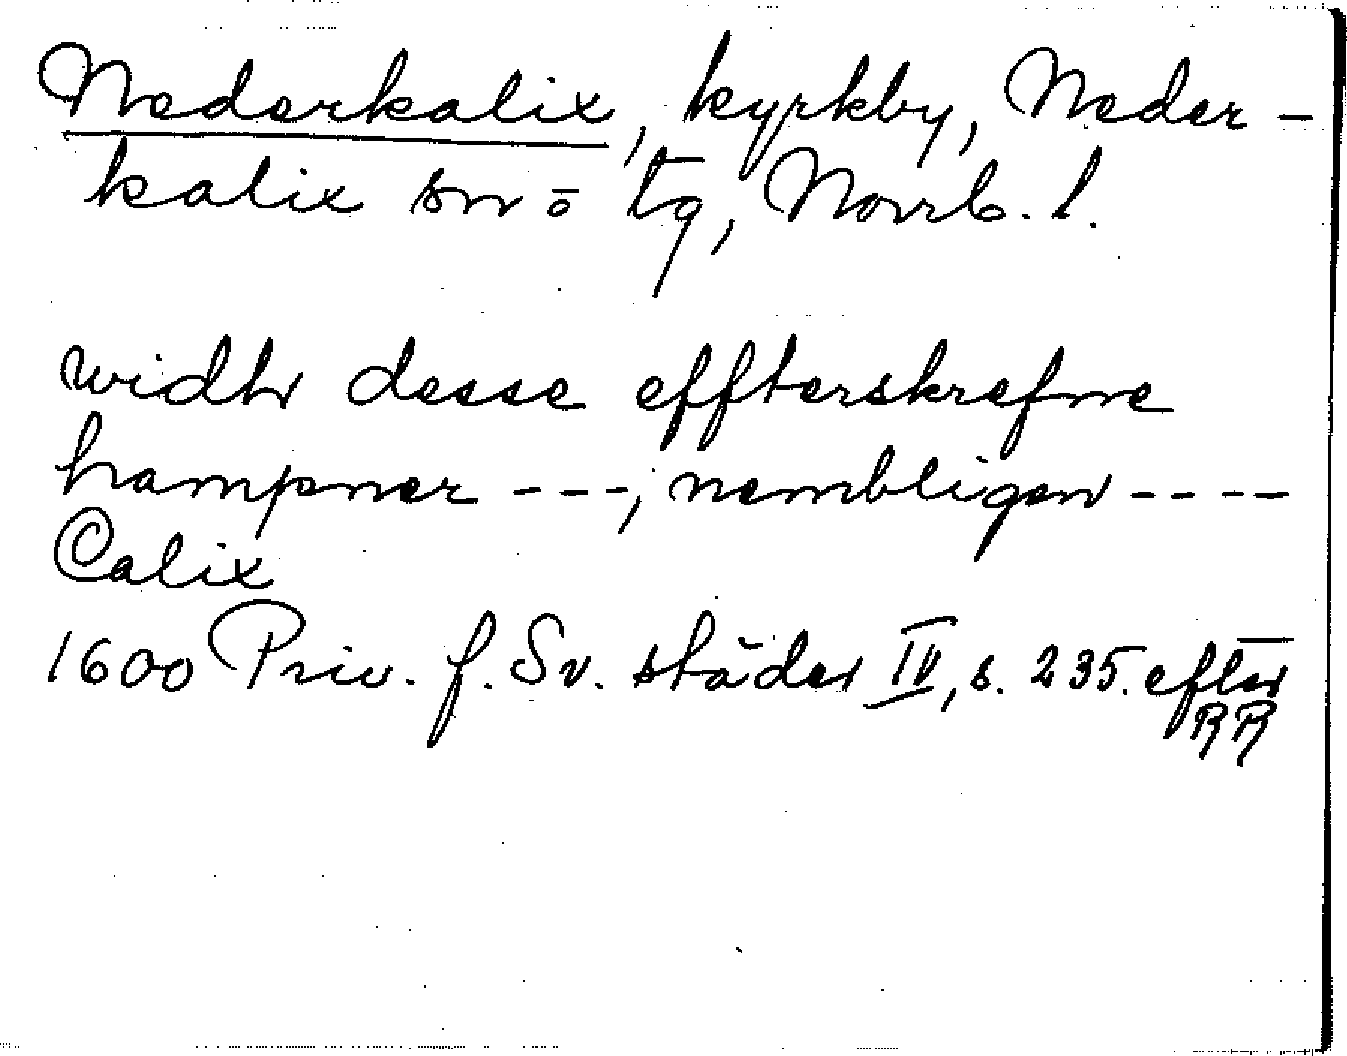 Nederkalix, kyrkby, Neder-
kalix sn o tg, Norrb. l.
widh desse effterskrefne
hampner ---, nembligen ----
Calix
1600 Priv. f. Sv. städer IV, s. 235. efter
RR